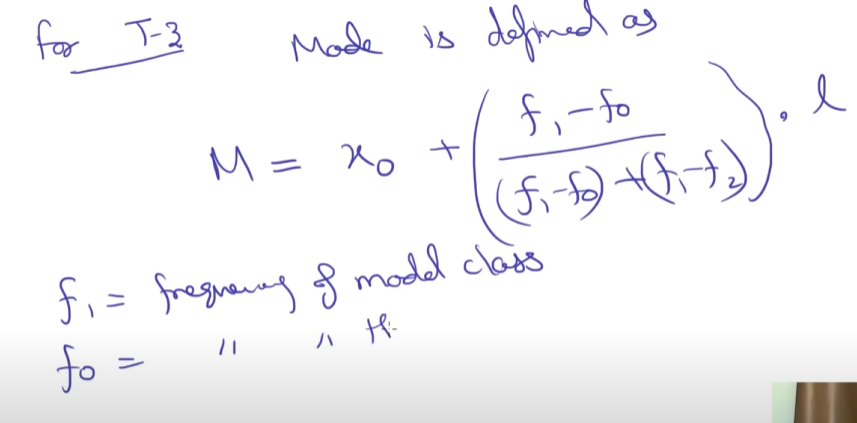 for T-3 Mode is defined as
M = x₀ + ( (f₁ - f₀) / ((f₁-f₀) + (f₁-f₂)) ) . l
f₁ = frequency of model class
f₀ = " "